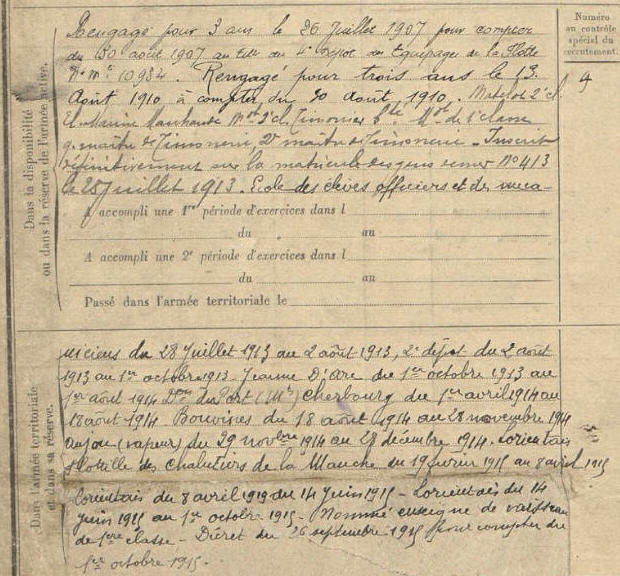 Numéro
au contrôle
spécial du
recrutement.
9
Dans la disponibilité
ou dans la réserve de l'armée active.
Rengagé pour 3 ans le 26 Juillet 1907 pour compter
du 30 août 1907 au du 4e Dépot des Equipages de la Flotte
No mle 10984. Rengagé pour trois ans le 13
Août 1910 à compter du 30 août 1910. Matelot 2e cl.
Mot 2e cl. Timonier Bté Mot de 1e classe
q. maitre de Timonerie, 2d maitre de Timonerie - Inscrit
définitivement sur la matricule des gens de mer No 413
le 25 Juillet 1913. Ecole des élèves officiers et des meca-
A accompli une 1re période d'exercices dans l
du au
A accompli une 2e période d'exercices dans l
du au
Passé dans l'armée territoriale le
Dans l'armée territoriale
et dans sa réserve.
niciens du 28 Juillet 1913 au 2 août 1913, 2e dépot du 2 août
1913 au 1er octobre 1913. Jeanne D'Arc du 1er octobre 1913 au
1er 1914 du Port Cherbourg du 1er avril 1914 au
18 août 1914. Bouvines du 18 août 1914 au 28 novembre 1914
anjou (vapeur) du 29 novbre 1914 au 28 décembre 1914. Lorientais
flotille des chalutiers de la Manche du 19 février 1915 au 8 avril 1915
Lorientais du 8 avril du 14 Juin 1915 - du 14
Juin 1915 au 1er octobre 1915 - Nommé enseigne de vaisseau
de 1ère classe - Décret du 26 septembre 1915 pour compter du
1er octobre 1915.